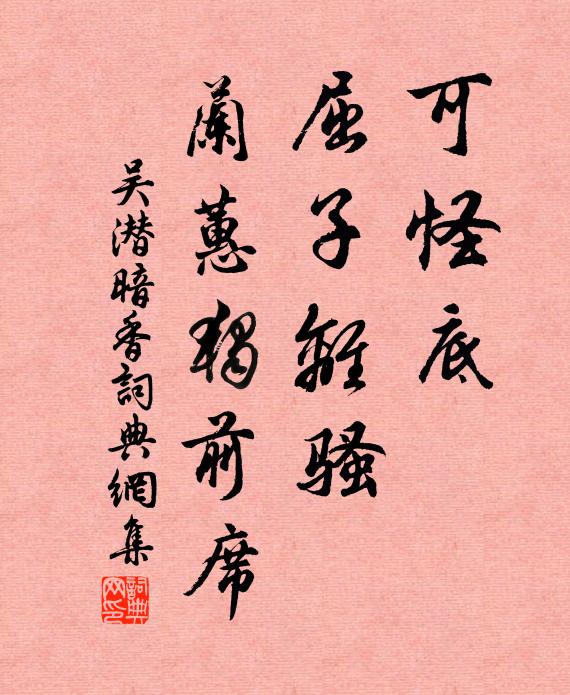 可怪底
屈子離騷
蘭蕙獨前席
吴潜暗香詞典網集
詞典網印